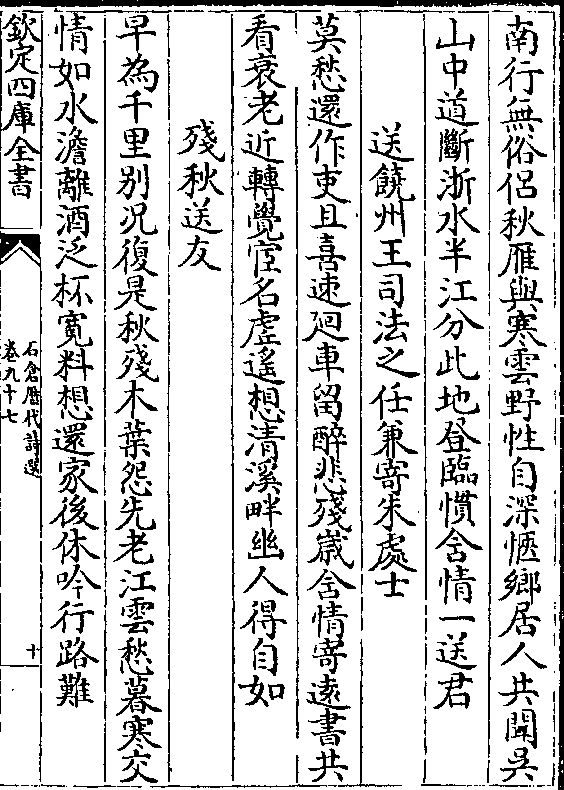 南行無俗侶秋雁與寒雲野性自深愜鄉居人共聞吳
山中道斷浙水半江分此地登臨慣含情一送君
送饒州王司法之任兼寄朱處士
莫愁還作吏且喜速廻車留醉悲殘嵗含情寄遠書共
看衰老近轉覺宦名虛遙想清溪畔幽人得自如
殘秋送友
早為千里別況復是秋殘木葉怨先老江雲愁暮寒交
情如水澹離酒泛杯寬料想還家後休吟行路難
欽定四庫全書
石倉歴代詩選
卷九十七
十